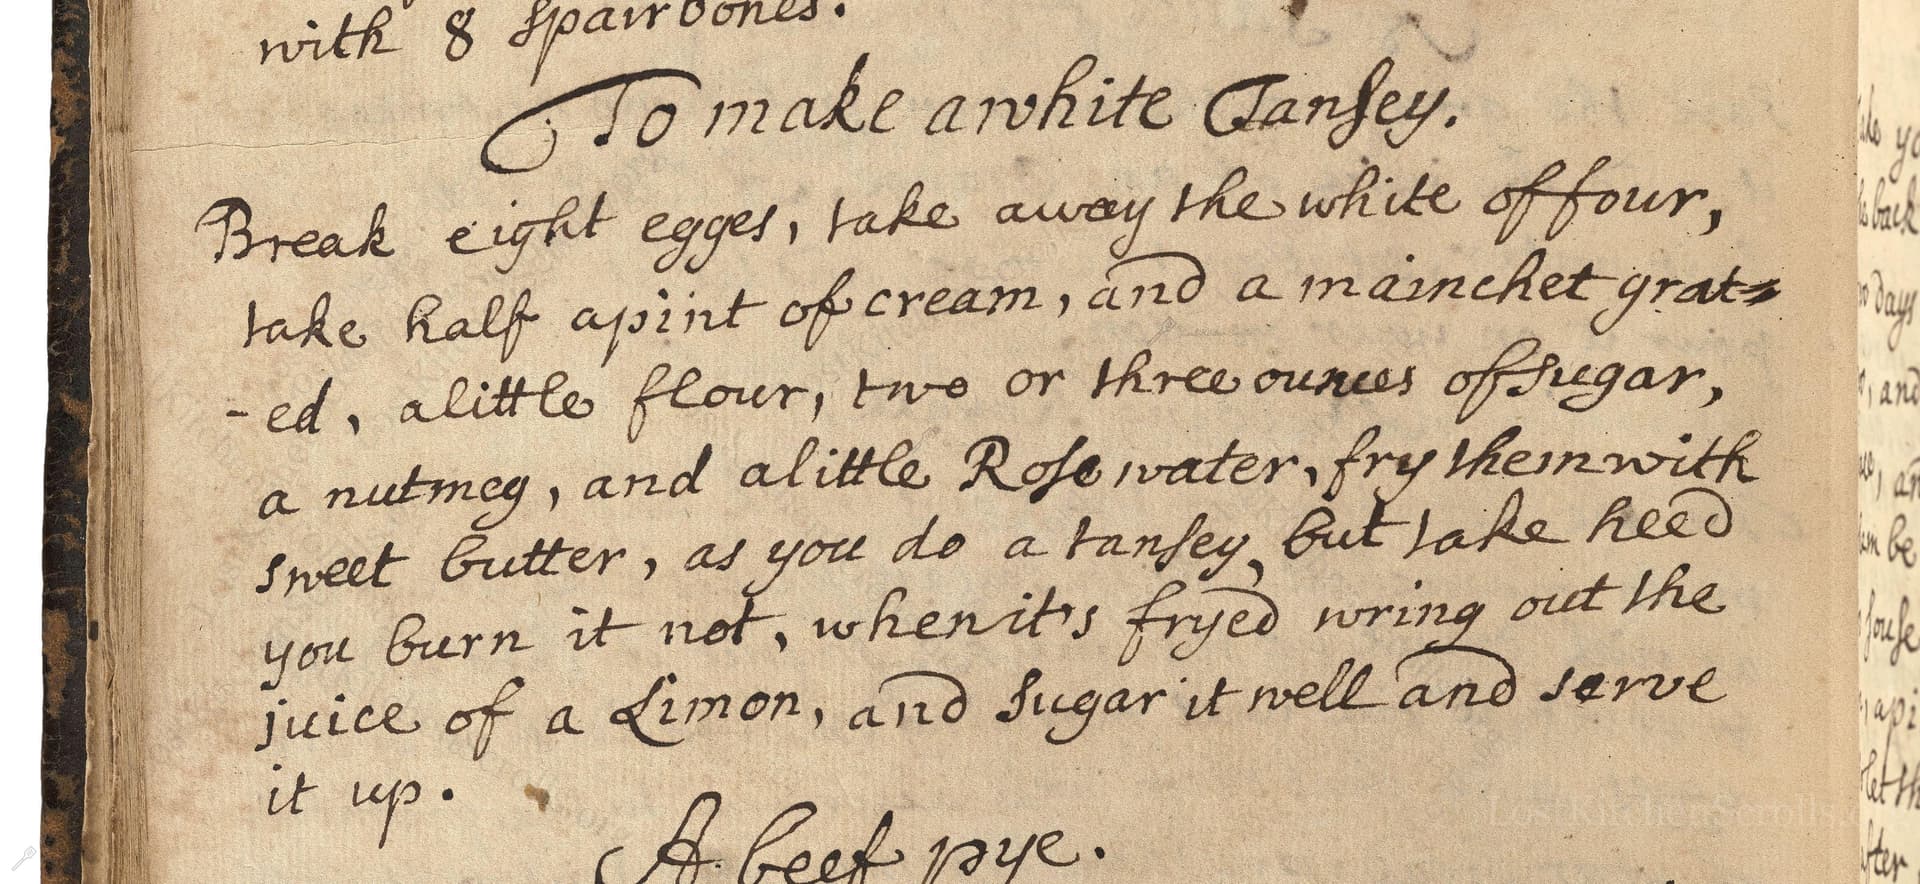 with 8 spairbones.
To make a white Tansey.
Break eight egges, take away the white of four,
take half a pint of cream, and a mainchet grat=
-ed, a little flour, two or three ounces of sugar,
a nutmeg, and a little Rose water, fry them with
sweet butter, as you do a tansey, but take heed
you burn it not, when it's fryed wring out the
juice of a Limon, and sugar it well and serve
it up.
A beef pye.
LostKitchenScrolls.